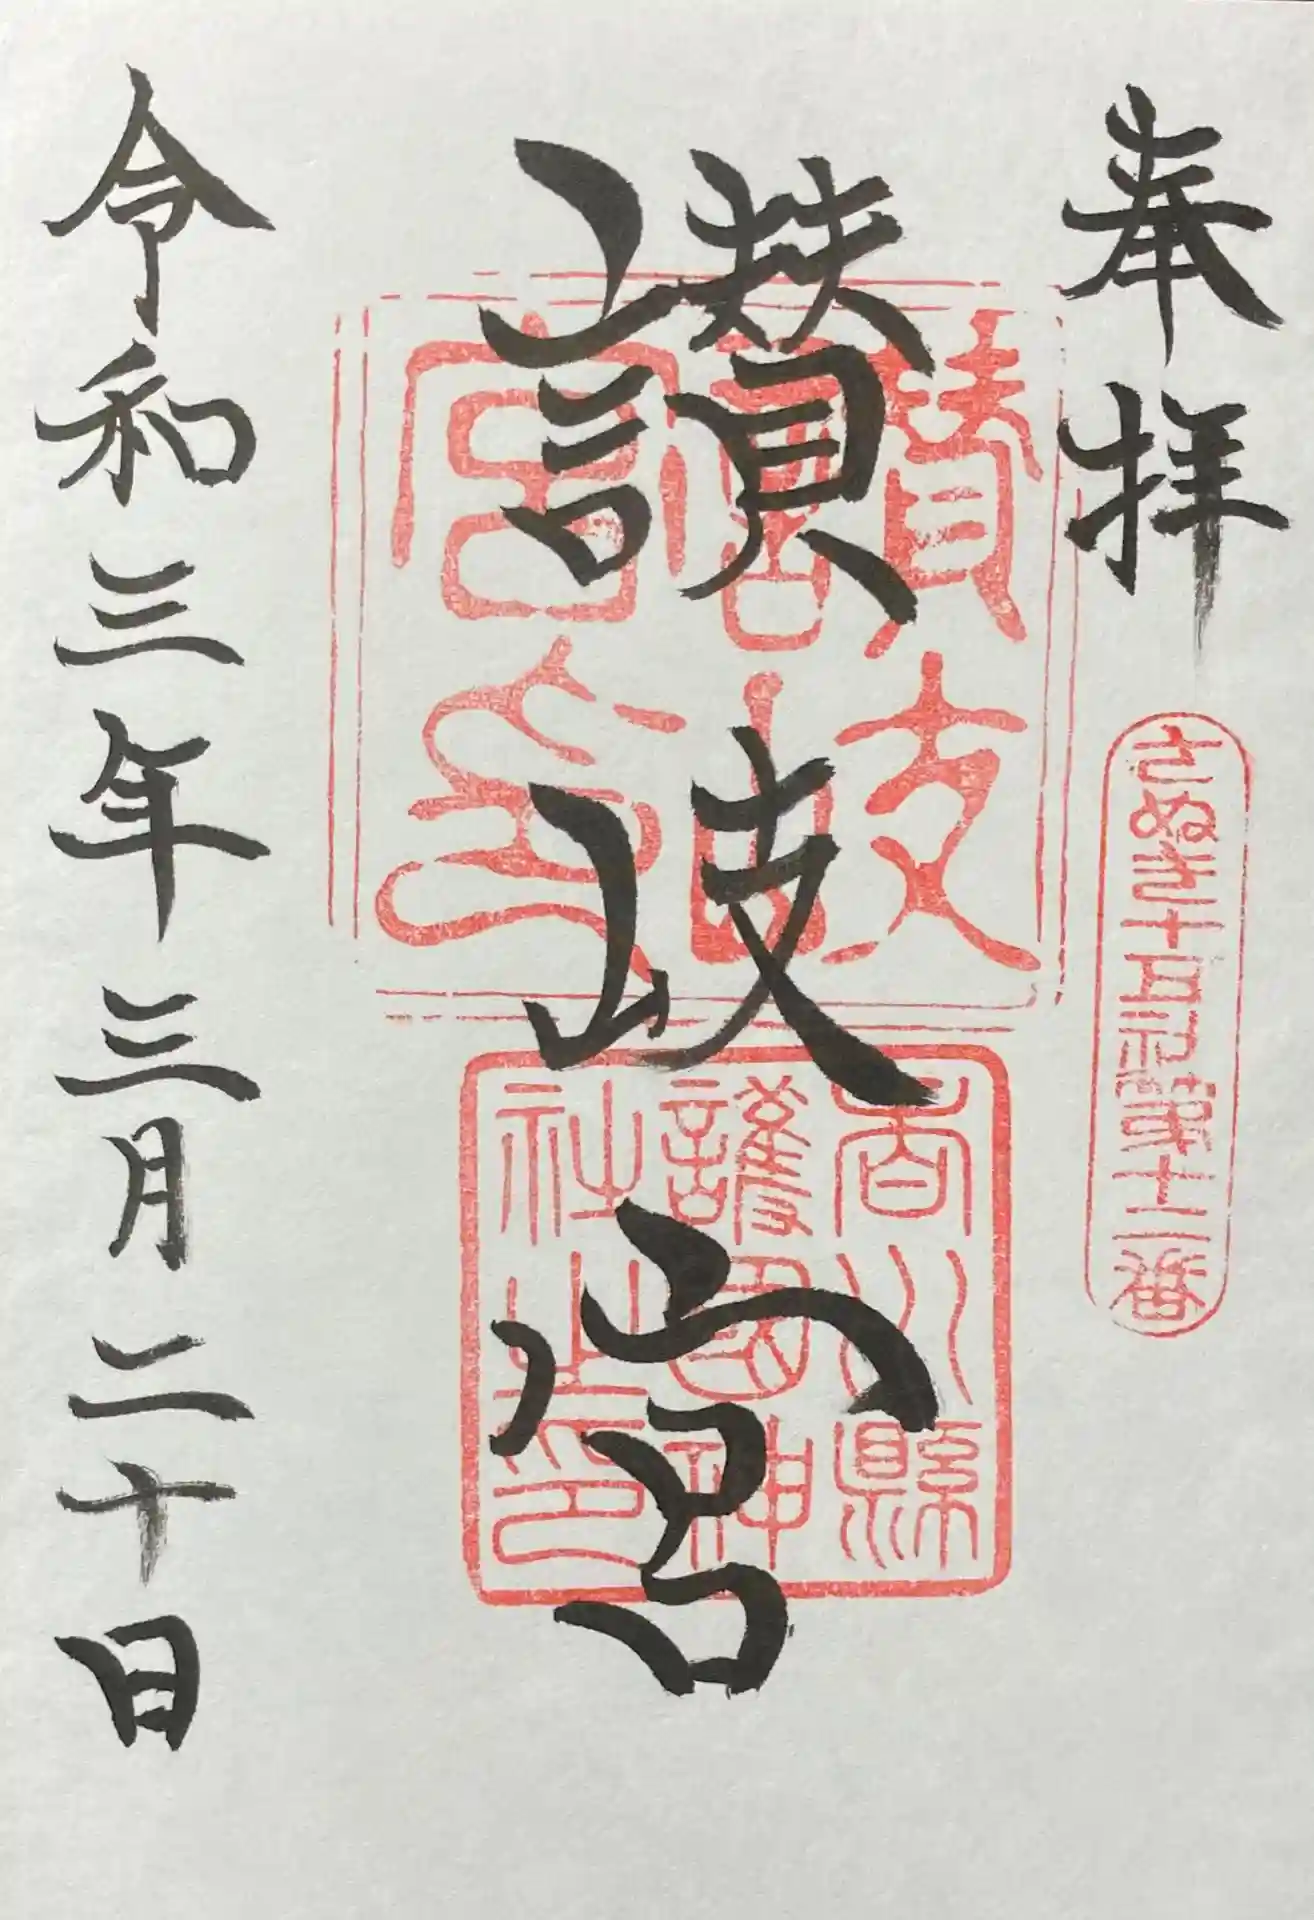 奉拝
さぬき十五社第十二番
讃岐宮
讃岐宮印
香川縣
護國神
社之印
令和三年三月二十日